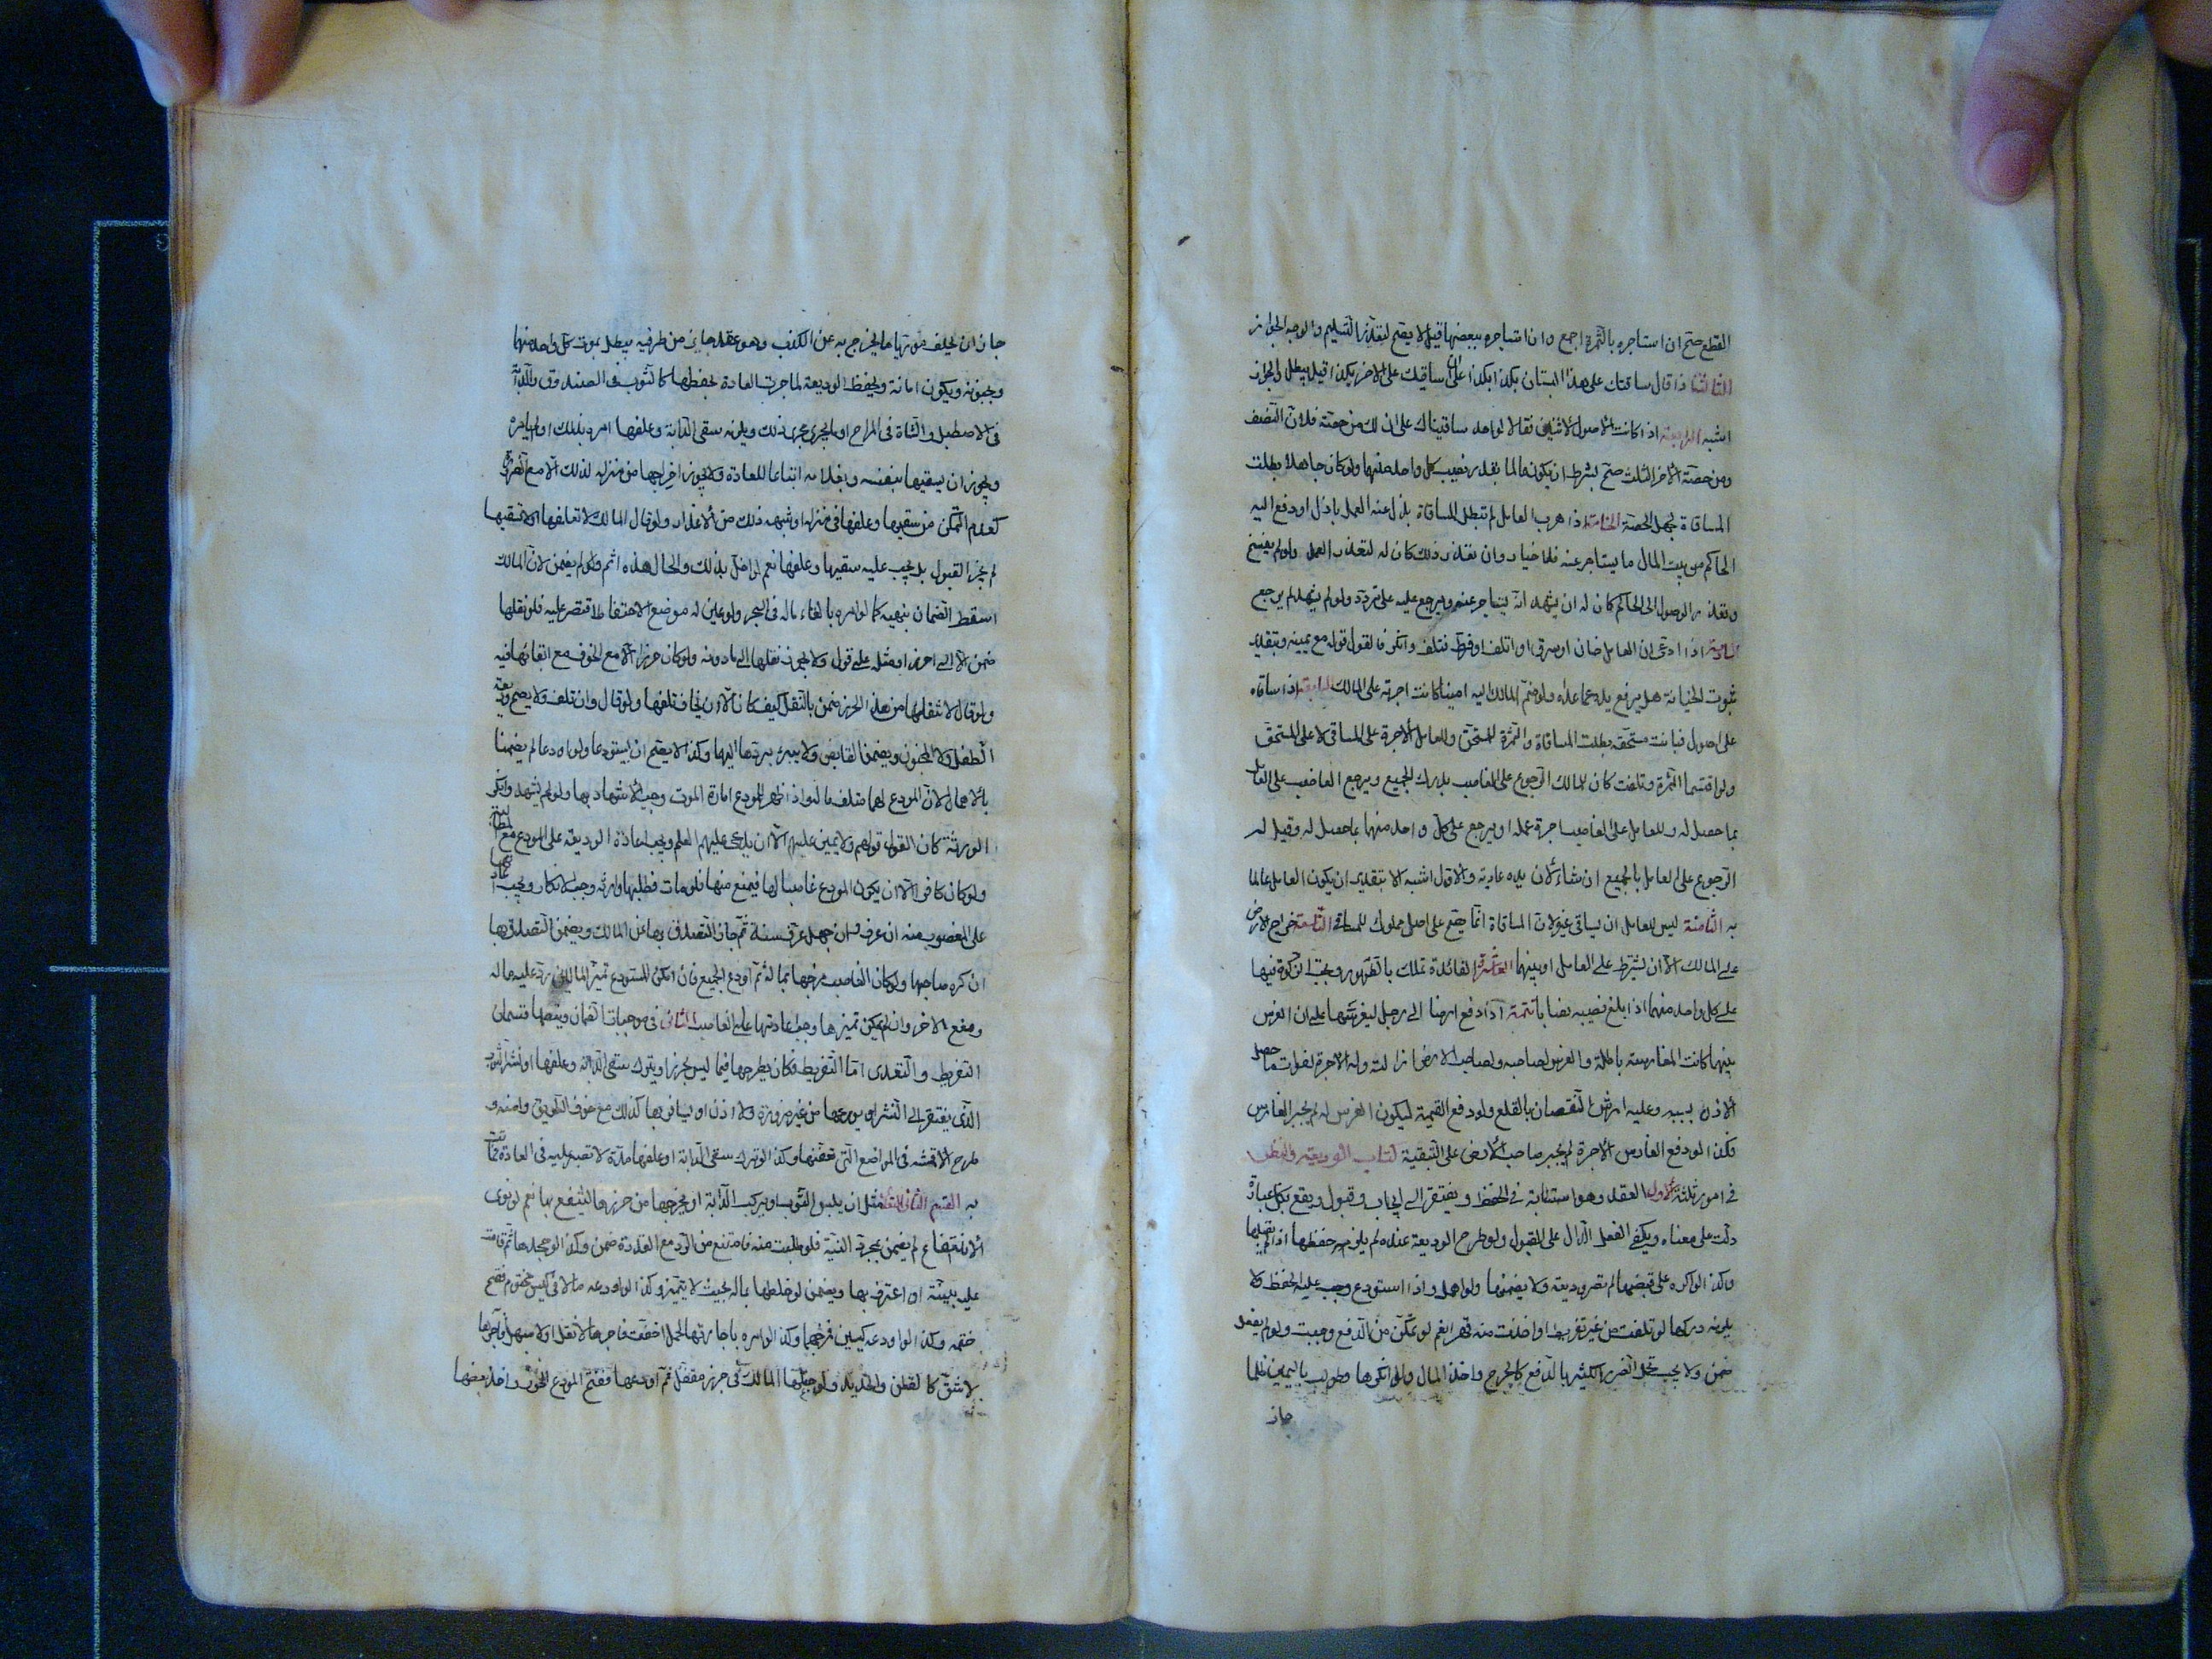 القطع صح ان استاجره بالثمرة اجمع وان استاجره ببعضها قيل لا يصح لتعذر التسليم والوجه الجواز
الثالثة اذا قال ساقيتك على هذا البستان بكذا على ان اساقيك على الاخر بكذا قيل يبطل والجواز
اشبه الرابعة اذا كانت الاصول لاثنين فقالا لواحد ساقيناك على ان لك من حصة فلان النصف
ومن حصة الاخر الثلث صح بشرط ان يكون عالما بقدر نصيب كل واحد منهما ولو كان جاهلا بطلت
المساقاة لجهل الحصة الخامسة اذا هرب العامل لم تبطل المساقاة بذل عنه العمل باذل او دفع اليه
الحاكم من بيت المال ما يستاجر عنه فلا خيار وان تعذر ذلك كان له لتعذر العمل ولو لم يفسخ
وتعذر الوصول الى الحاكم كان له ان يشهد انه يستاجر عنه ويرجع عليه على تردد ولو لم يشهد لم يرجع
السادسة اذا ادعى ان العامل خان او سرق او اتلف او فرط فتلف وانكر فالقول قوله مع يمينه وبتقدير
ثبوت الخيانة هل يرفع يده عما عداه ولو ضم المالك اليه امينا كانت اجرته على المالك السابعة اذا ساقاه
على اصول فبانت مستحقة بطلت المساقاة والثمرة للمستحق وللعامل الاجرة على المساقي لا على المستحق
ولو اقتسما الثمرة وتلفت كان للمالك الرجوع على الغاصب بدرك الجميع ويرجع الغاصب على العامل
بما حصل له وللعامل على الغاصب اجرة عمله او يرجع على كل واحد منهما بما حصل له وقيل له
الرجوع على العامل بالجميع ان شاء لان يده عادية والاول اشبه الا بتقدير ان يكون العامل عالما
به الثامنة ليس للعامل ان يساقي غيره لان المساقاة انما تصح على اصل مملوك للمساقي التاسعة خراج الارض
على المالك الا ان يشترط على العامل او بينهما العاشرة الفائدة تملك بالظهور وتجب الزكوة فيها
على كل واحد منهما اذا بلغ نصيبه نصابا تتمة اذا دفع ارضا الى رجل ليغرسها على ان الغرس
بينهما كانت المغارسة باطلة والغرس لصاحبه ولصاحب الارض ازالته وله الاجرة لفوات ما حصل
الاذن بسببه وعليه ارش النقصان بالقلع ولو دفع القيمة ليكون الغرس له لم يجبر الغارس
وكذا لو دفع الغارس الاجرة لم يجبر صاحب الارض على التبقية كتاب الوديعة والنظر
في امور ثلثة الاول العقد وهو استنابة في الحفظ ويفتقر الى ايجاب وقبول ويقع بكل عبارة
دلت على معناه ويكفي الفعل الدال على القبول ولو طرح الوديعة عنده لم يلزمه حفظها اذا لم يقبلها
وكذا لو اكره على قبضها لم تصر وديعة ولا يضمنها ولو اهمل واذا استودع وجب عليه الحفظ ولا
يلزمه دركها لو تلفت من غير تفريط او اخذت منه قهرا نعم لو تمكن من الدفع وجبت ولو لم يفعل
ضمن ولا يجب تحمل الضرر الكثير بالدفع كالجرح واخذ المال ولو انكرها وطولب باليمين ظلما
جاز
جاز ان يحلف موريا ما يخرج به عن الكذب وهو عقد جايز من طرفيه يبطل بموت كل واحد منهما
وبجنونه ويكون امانة ويحفظ الوديعة لما جرت العادة بحفظها كالثوب في الصندوق والدابة
في الاصطبل والشاة في المراح او ما يجري مجرى ذلك ويلزمه سقي الدابة وعلفها امره بذلك او لم يامره
ويجوز ان يسقيها بنفسه وبغلامه اتباعا للعادة ولا يجوز اخراجها من منزله لذلك الا مع الضرورة
كعدم التمكن من سقيها وعلفها في منزله او شبه ذلك من الاعذار ولو قال المالك لا تعلفها او لا تسقيها
لم يجز القبول بل يجب عليه سقيها وعلفها نعم لو اخل بذلك والحال هذه اثم ولم يضمن لان المالك
اسقط الضمان بنهيه كما لو امره بالقاء ماله في البحر ولو عين له موضع الاحتفاظ اقتصر عليه فلو نقلها
ضمن الا الى احرز او مثله على قول ولا يجوز نقلها الى ما دونه ولو كان حرزا الا مع الخوف مع ابقائها فيه
ولو قال لا تنقلها من هذا الحرز ضمن بالنقل كيف كان الا ان يخاف تلفها ولو قال وان تلفت ولا يصح وديعة
الطفل ولا المجنون ويضمن القابض ولا يبرئ بردها اليهما وكذا لا يصح ان يستودعا ولو اودعا لم يضمنا
بالاهمال لان المودع لهما متلف ماله واذا ظهر للمودع امارة الموت وجب الاشهاد بها ولو لم يشهد وانكر
الورثة كان القول قولهم ولا يمين عليهم الا ان يدعى عليهم العلم ويجب اعادة الوديعة على المودع مع المطالبة
ولو كان كافرا الا ان يكون المودع غاصبا لها فيمنع منها فلو مات فطلبها وارثه وجب الانكار ويجب اعادتها
على المغصوب منه ان عرف وان جهل عرفت سنة ثم جاز التصدق بها عن المالك ويضمن المتصدق بها
ان كره صاحبها ولو كان الغاصب مزجها بماله ثم اودع الجميع فان امكن المستودع تمييز المالين رد عليه ماله
ومنع الاخر وان لم يمكن تمييزها وجب اعادتها على الغاصب الثاني في موجبات الضمان وينظمها قسمان
التفريط والتعدي اما التفريط فكان يطرحها فيما ليس بحرز او يترك سقي الدابة وعلفها او نشر الثوب
الذي يفتقر الى النشر او يودعها من غير ضرورة ولا اذن او يسافر بها كذلك مع خوف الطريق وامنه و
طرح الاقمشة في المواضع التي تعفنها وكذا لو ترك سقي الدابة او علفها مدة لا تصبر عليه في العادة فماتت
به القسم الثاني التعدي مثل ان يلبس الثوب او يركب الدابة او يخرجها من حرزها لينتفع بها نعم لو نوى
الانتفاع لم يضمن بمجرد النية فلو طلبت منه فامتنع من الرد مع القدرة ضمن وكذا لو جحدها ثم قامت
عليه بينة او اعترف بها ويضمن لو خلطها بماله بحيث لا يتميز وكذا لو اودعه مالا في كيس مختوم ففتح
ختمه وكذا لو اودعه كيسين فمزجهما وكذا لو امره باجارتها لحمل اخف فاجرها لاثقل او لاسهل فاجرها
لاشق كالقطن والحديد ولو جعلها المالك في حرز مقفل ثم اودعها ففتح المودع الحرز واخذ بعضها